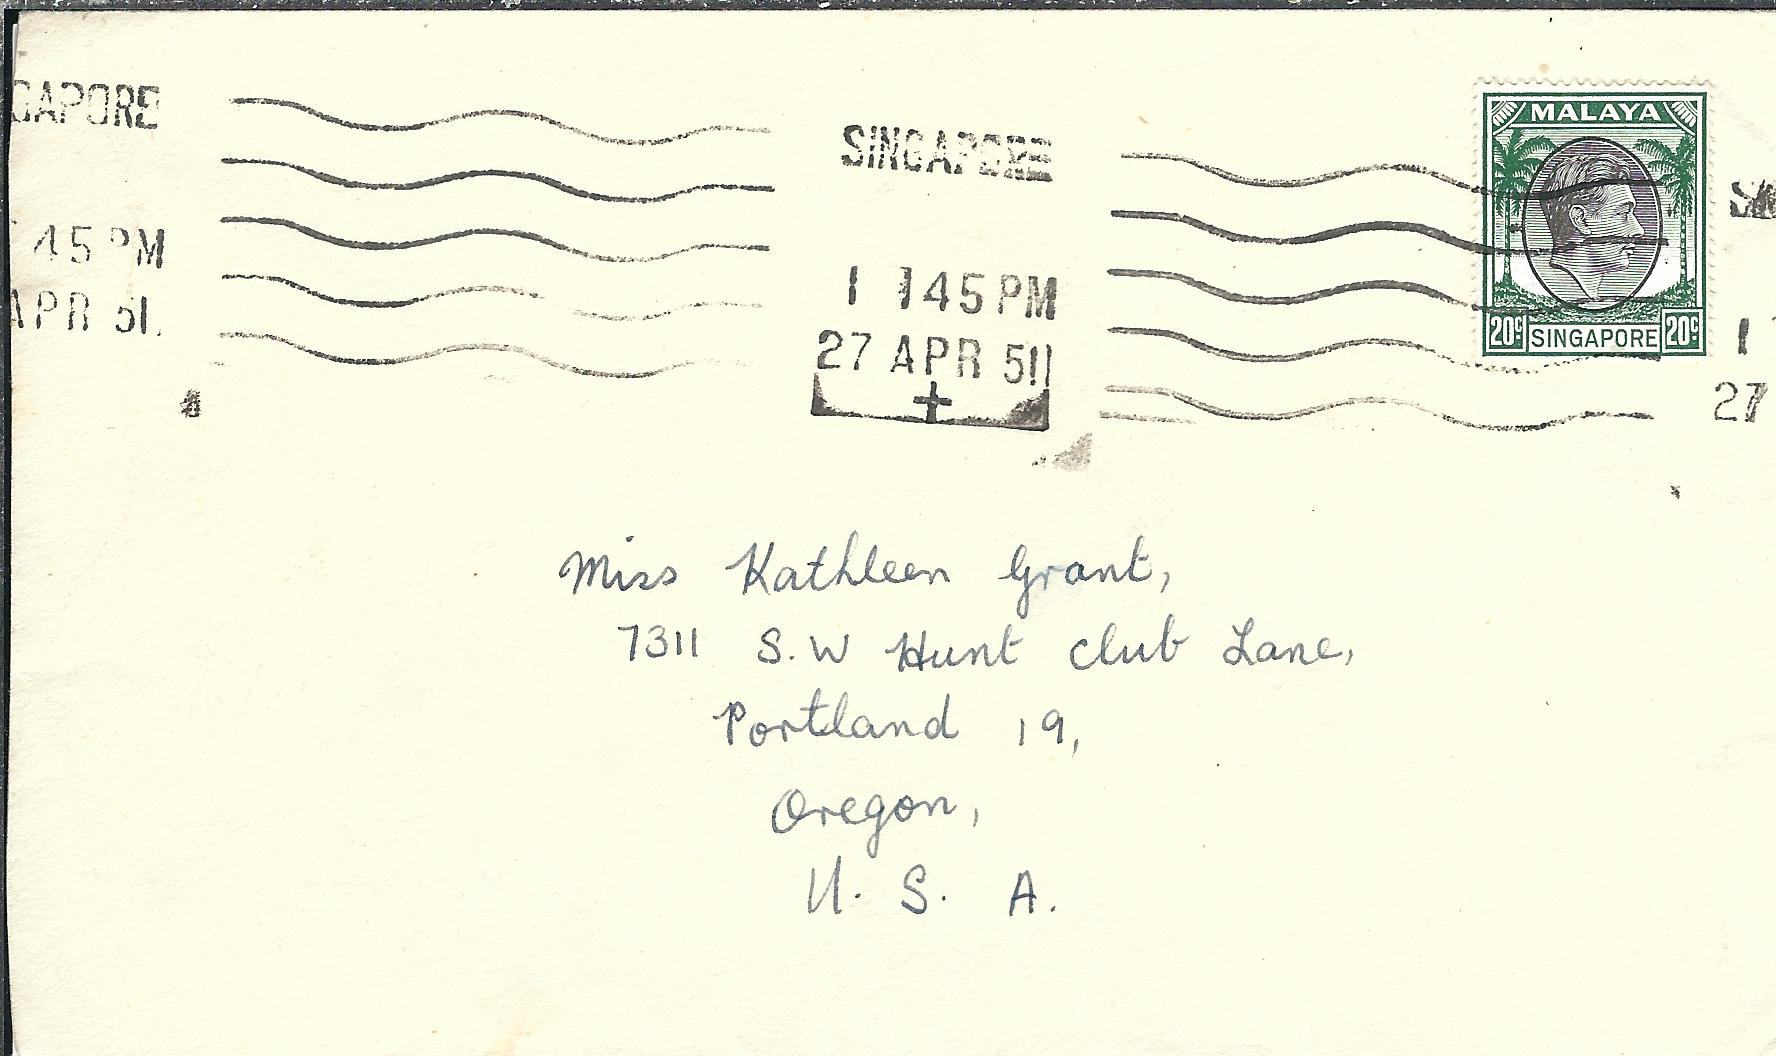 GAPORE
45 PM
APR 51
SINGAPORE
1 145 PM
27 APR 51
MALAYA
20c SINGAPORE 20c
1
27
Miss Kathleen Grant,
7311 S.W Hunt Club Lane,
Portland 19,
Oregon,
U. S. A.